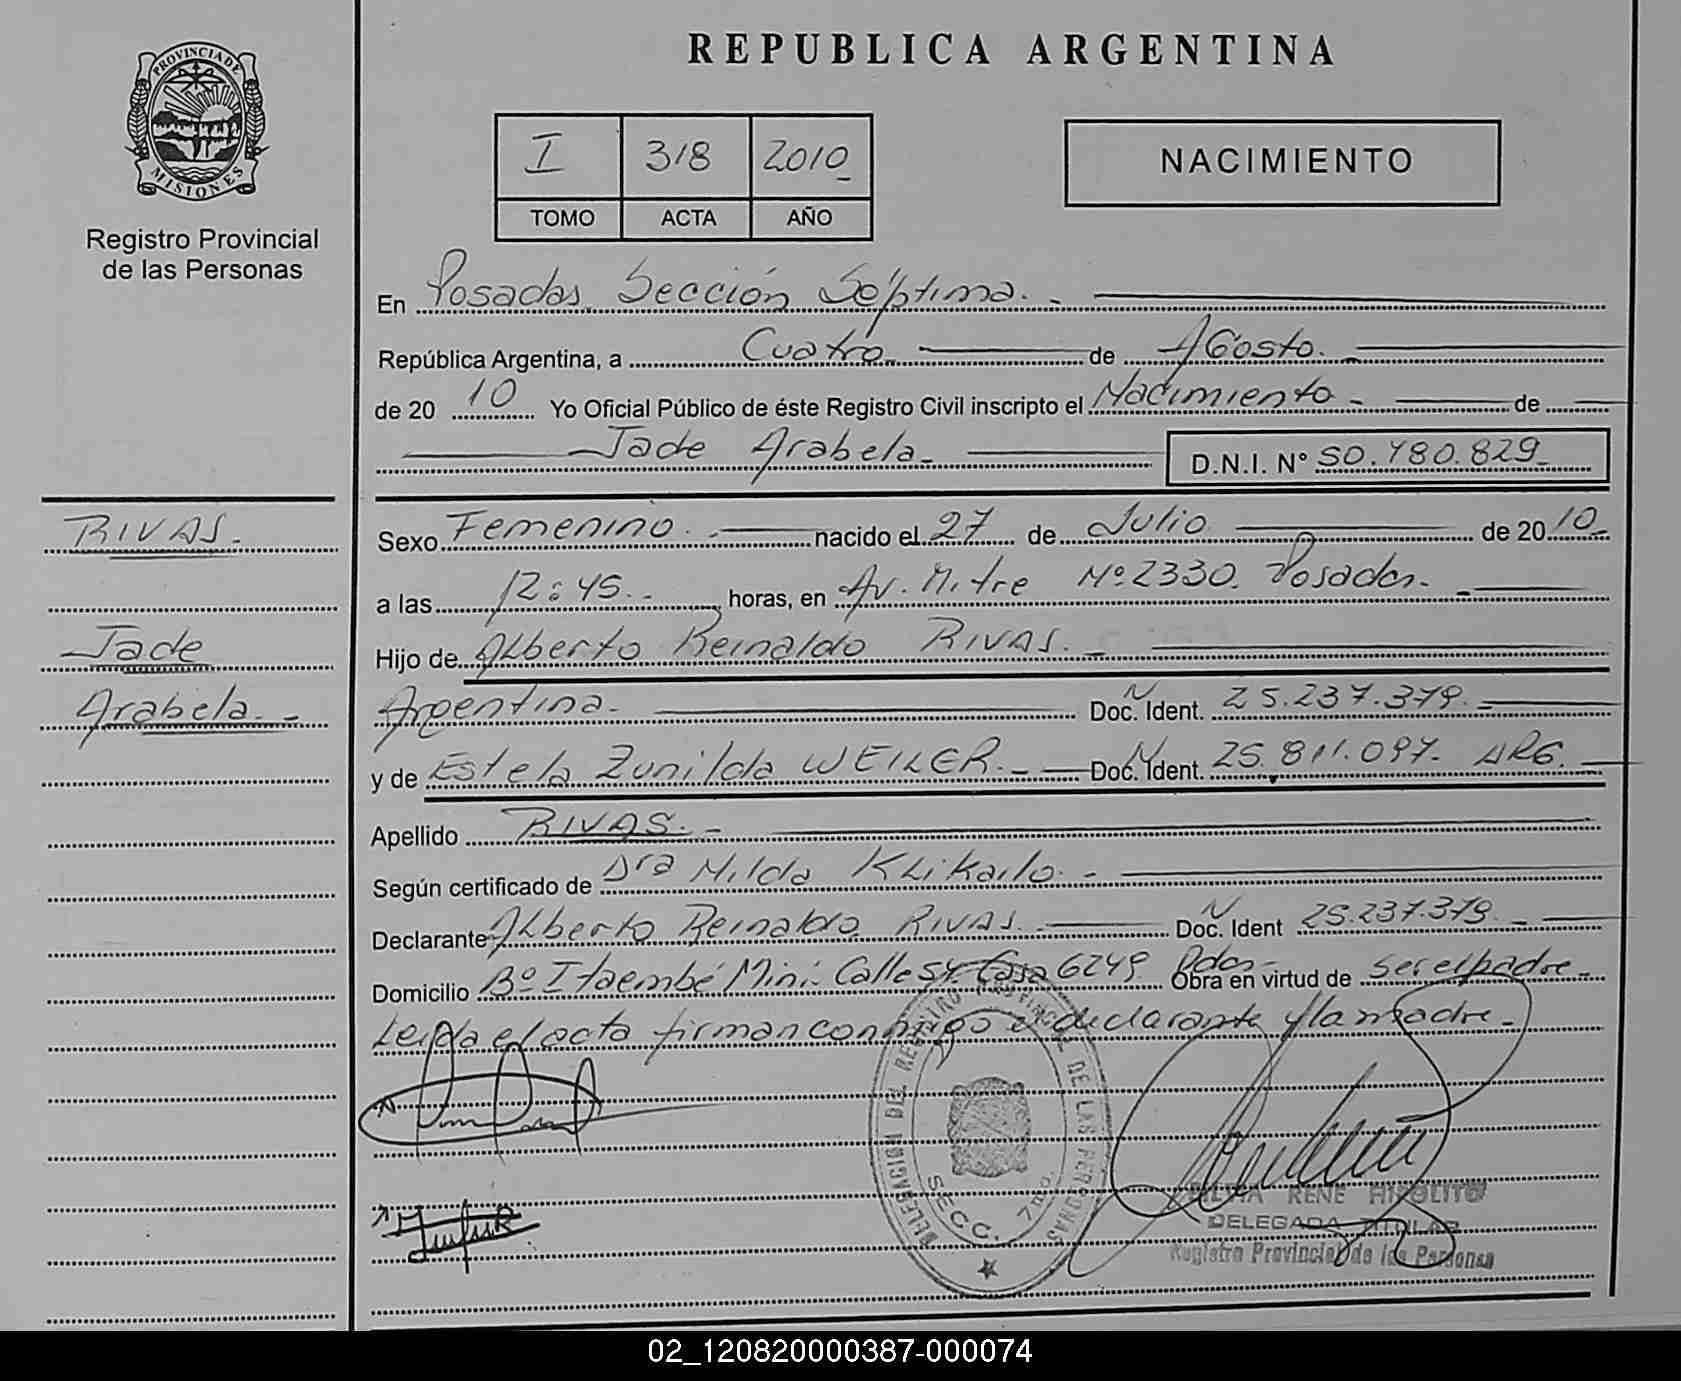 PROVINCIA DE
MISIONES
Registro Provincial
de las Personas
REPUBLICA ARGENTINA
I 318 2010
TOMO ACTA AÑO
NACIMIENTO
En Posadas Sección Séptima.
República Argentina, a Cuatro de AGosto.
de 20 10 Yo Oficial Público de éste Registro Civil inscripto el Nacimiento de
Jade Arabela D.N.I. N° 50.480.829
RIVAS.
Jade
Arabela.
Sexo Femenino. nacido el 27 de Julio de 20 10
a las 12:45 horas, en Av. Mitre Nº 2330. Posadas.
Hijo de Alberto Reinaldo RIVAS.
Argentina. Doc. Ident. 25.237.379.
y de Estela Zunilda WEILER. Doc. Ident. 25.811.097. ARG.
Apellido RIVAS.
Según certificado de Dra Nilda Klikailo.
Declarante Alberto Reinaldo RIVAS. Doc. Ident 25.237.379.
Domicilio Bº Itaembé Miní. Calle Casa 6249 Pdas. Obra en virtud de ser el padre
Leida el acta firman conmigo el declarante y la madre.
DELEGACION DEL REGISTRO PROVINCIAL DE LAS PERSONAS
SECC. 7ma.
SILVIA RENE HIPOLITO
DELEGADA TITULAR
Registro Provincial de las Personas
02_120820000387-000074